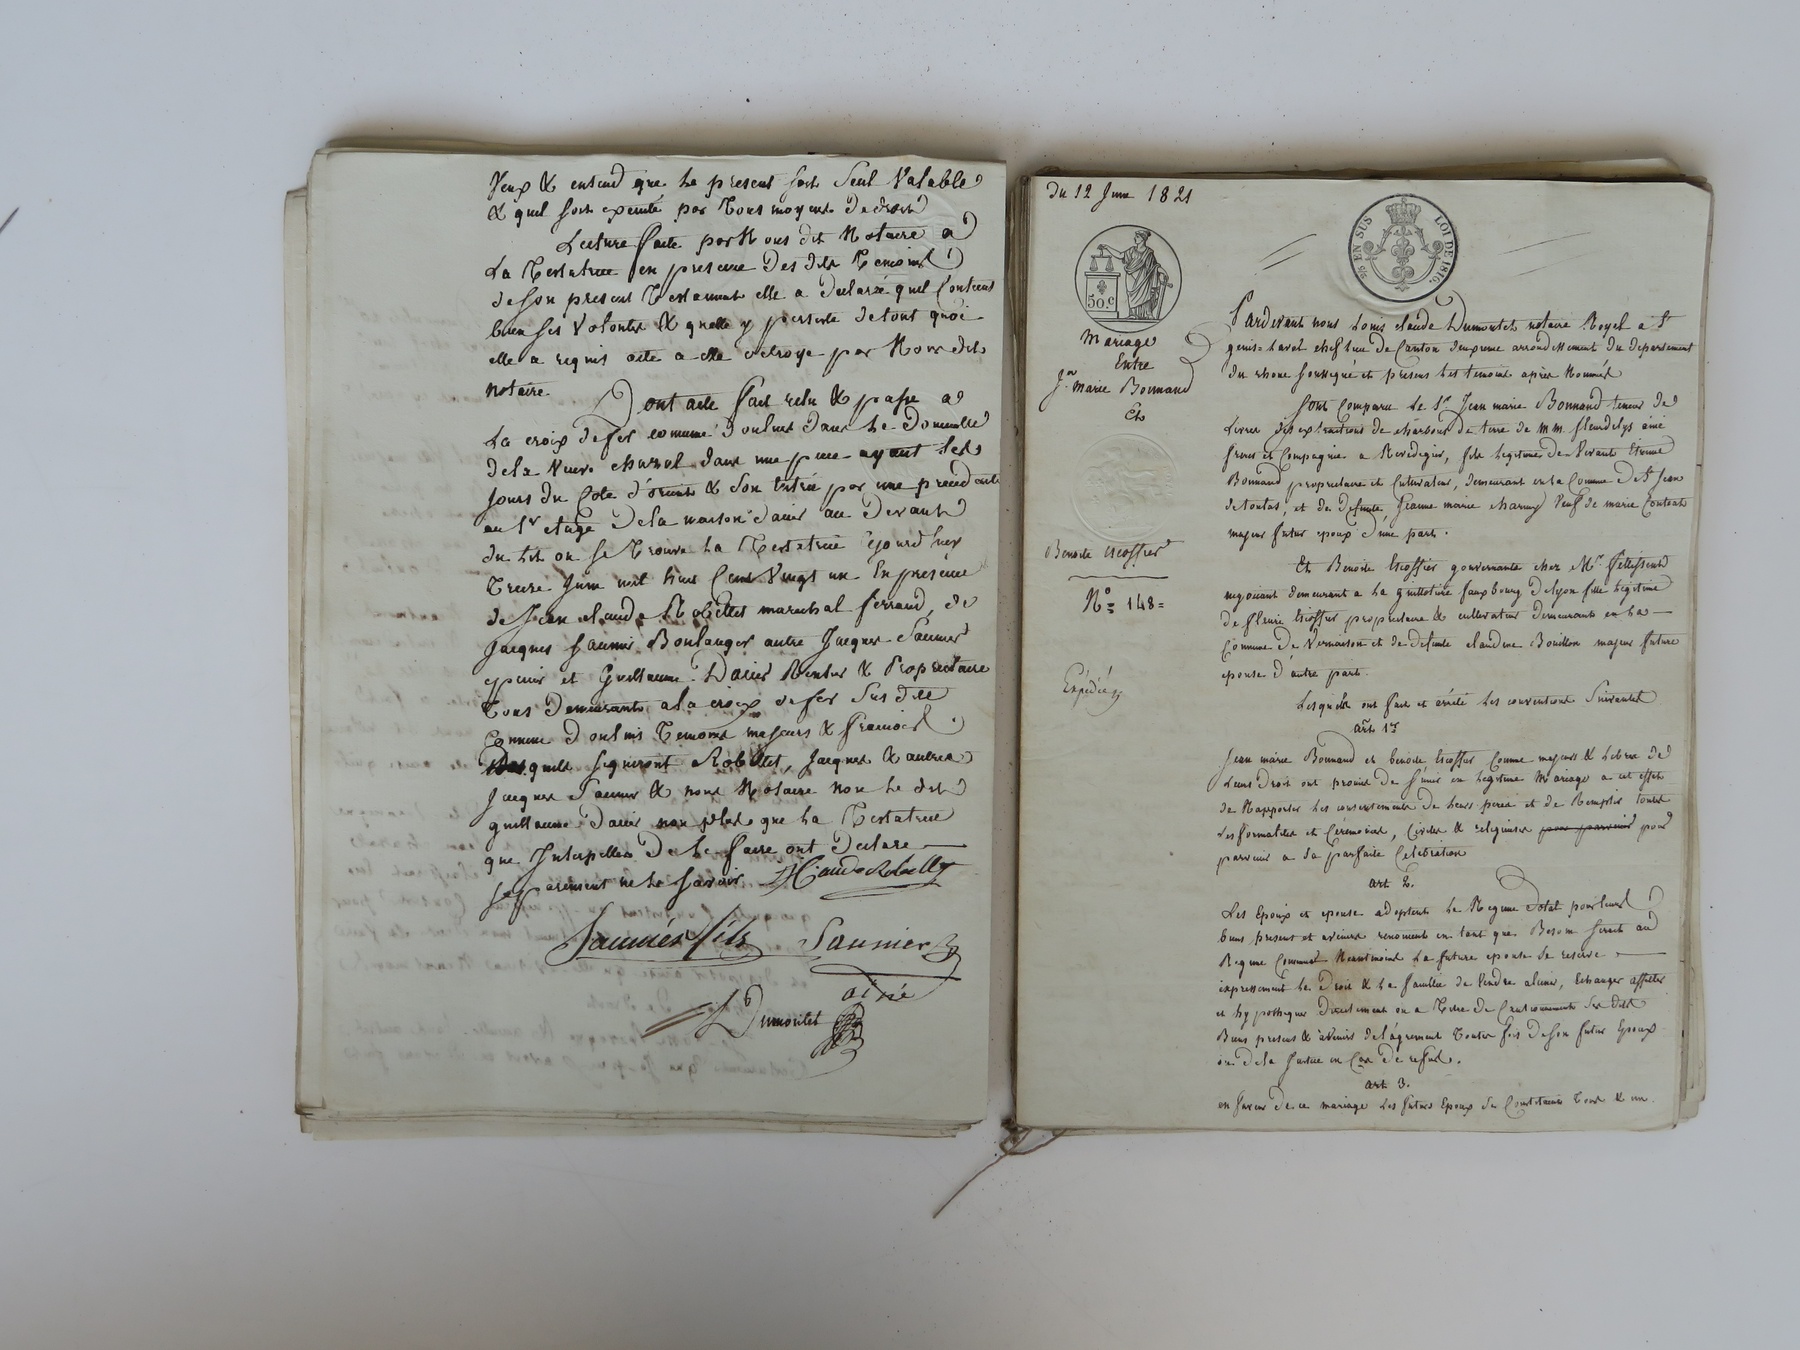 Veux & entend que le present soit seul valable
& quil soit execute par tous moyens de droit
Lecture faite par Nous dit Notaire a
La Testatrice en presence des dits temoins
de son present testament elle a declaré quil contient
bien ses volontés & quelle y persiste de tout quoi
elle a requis acte a elle octroyé par Nous dit
notaire.
Dont acte fait relu & passé a
La croix de fer commune d'oulins dans le domicille
de la veuve charvol dans une piece ayant ses
jours du Coté d'orient & son entrée par une precedente
au 1er etage de la maison davier au devant
du lit ou se trouve la Testatrice cejourdhuy
Treize Juin mil huit Cent vingt un En presence
de Jean claude Robellet marechal ferrand, de
Jacques Saunier Boulanger autre Jacques Saunier
epicier et Guillaume Davier Rentier & Proprietaire
tous demeurants a la croix de fer sus dite
Commune d'oulins temoins majeurs & francois
quils signeront Robellet, Jacques & autre
Jacques Saunier & nous Notaire non le dit
guillaume davier non plus que la Testatrice
que Interpellés de le faire ont declaré
separement ne le savoir JH Claude Robellet
Saunier fils Saunier
ainé
L Dumontet
Du 12 Juin 1821
5/5 EN SUS LOI DE 1816.
50.c
Mariage
Entre
Jn. marie Bonnand
Et
Benoite Escoffier
No = 148 =
Expédié
Pardevant nous Louis claude Dumontet notaire Royal a St
genis-laval chef lieu de Canton deuxieme arrondissement du departement
du rhone soussigné et presens les temoins après Nommés
Sont Comparu Le Sr Jean marie Bonnand teneur de
Livres des extractions de charbons de terre de MM. fleurdelys ainé
freres et Compagnie a Rivedegier, fils legitime de vivant Etienne
Bonnand proprietaire et Cultivateur, demeurant en la Commune de St Jean
detoulas, et de defunte Jeanne marie charvy veuf de marie Contant
majeur futur epoux d'une part.
Et Benoite Escoffier gouvernante chez Mr
negociant demeurant a la guillotiere fauxbourg de lyon fille legitime
de fleurie Escoffier proprietaire & cultivateur demeurant en la
Commune de Vernaison et de defunte claudine Bouillon majeure future
epouse d'autre part.
Lesquels ont fait et arrêté les conventions suivantes
art. 1er
Jean marie Bonnand et benoite Escoffier Comme majeurs & Libres de
Leurs droits ont promis de s'unir en legitime Mariage a cet effet
de Rapporter les consentements de leurs peres et de Remplir toutes
Les formalités et Cérémonies, Civiles & religieuses pour parvenir pour
parvenir a sa parfaite Celebration
art. 2.
Les Epoux et epouse adoptent le Regime dotal pour leurs
biens present et avenirs renoncent en tant que Besoin serait au
Regime Communal Neantmoins La future epouse se reserve
expressement le droit & la faculté de vendre aliener, Echanger affecter
et hypothequer directement ou a Titre de Cautionnement ses dits
Biens presens & avenirs de l'agrement toutes fois de son futur Epoux
ou de la Justice en Cas de refus.
art. 3.
en faveur de ce mariage les futurs Epoux se Constituent tous & un